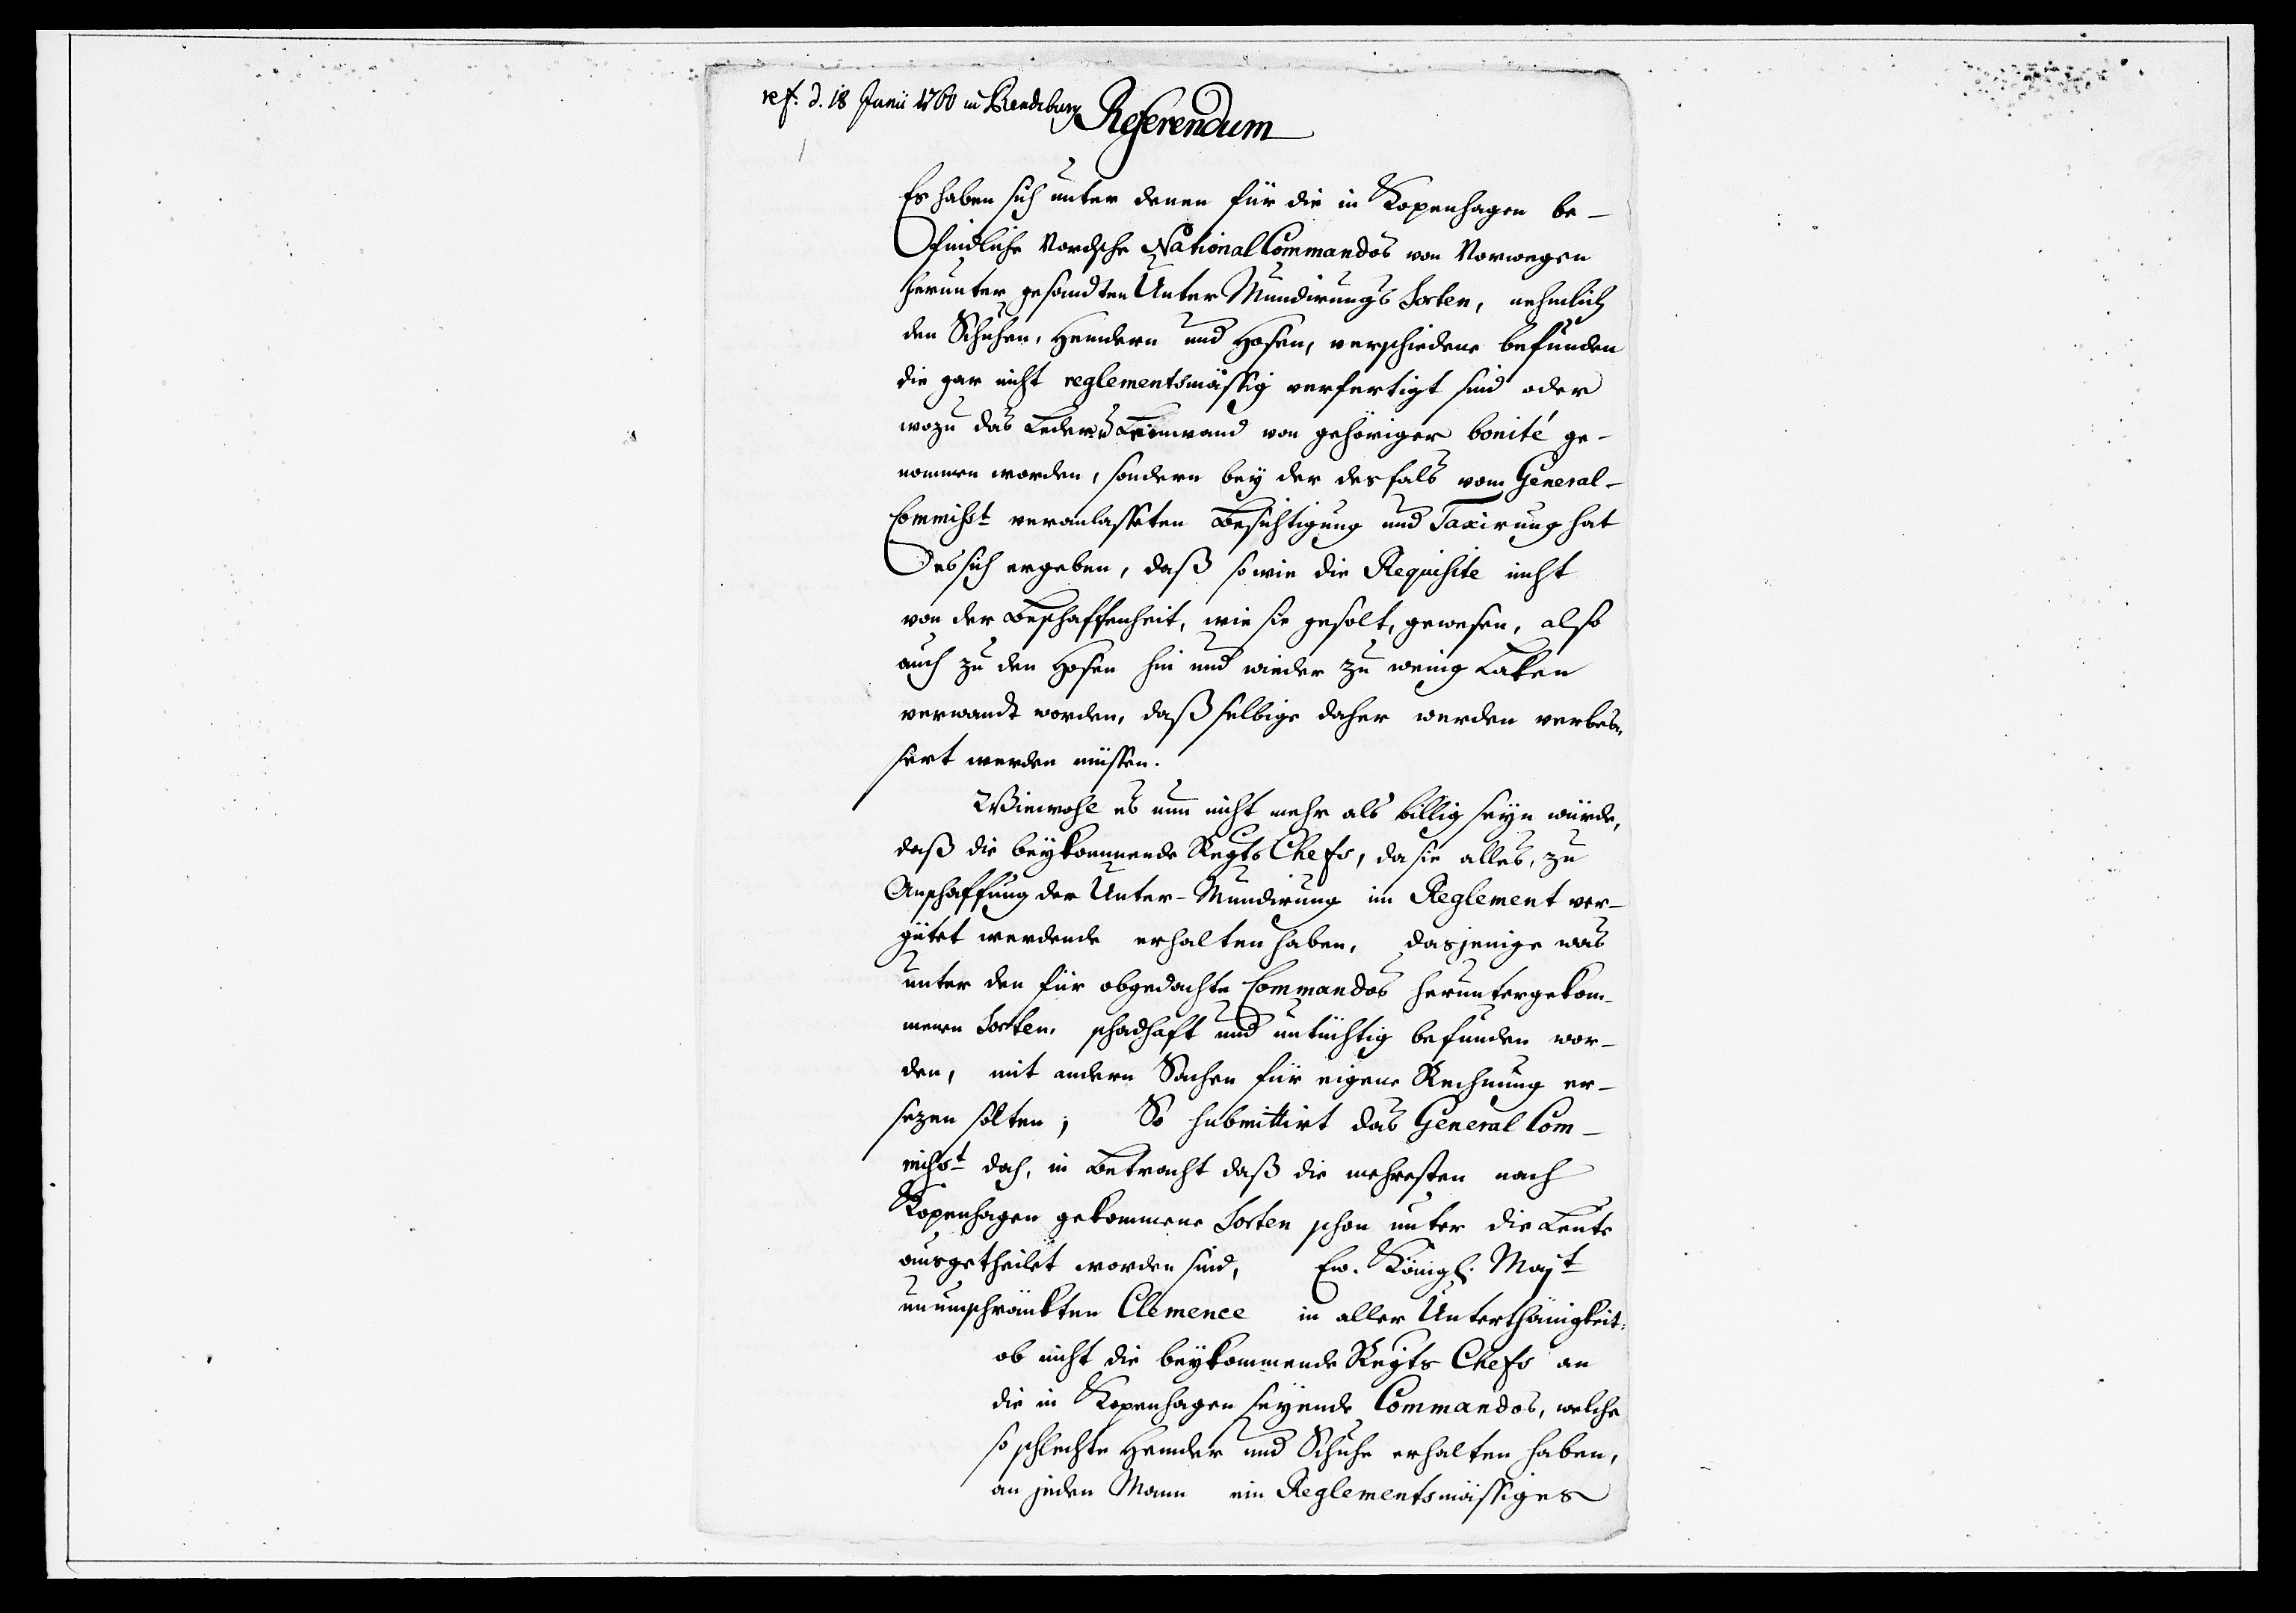 ref. d. 18 Junii 1760 in Rendsburg
Referendum
Es haben sich unter denen für die in Kopenhagen be-
findliche Nordsche National Commandos von Norwegen
herunter gesandten Unter Mundirungs Sorten, nehmlich
den Schuhen, Hemdern und Hosen, verschiedene befunden
die gar nicht reglementsmässig verfertigt sind oder
wozu das Leder u Leinwand von gehöriger bonité ge-
nommen worden, sondern bey der desfals vom General-
Commisst veranlassten Besichtigung und Taxirung hat
es sich ergeben, daß so wie die Requisite nicht
von der Beschaffenheit, wie sie gesolt, gewesen, also
auch zu den Hosen hin und wieder zu wenig Laken
verwandt worden, daß selbige daher werden verbes-
sert werden müssen.
Wiewohl es nun nicht mehr als billig seyn würde,
daß die beykommende Regts Chefs, da sie alles, zu
Anschaffung der Unter-Mundirung im Reglement ver-
gütet werdende erhalten haben, dasjenige was
unter den für obgedachte Commandos heruntergekom-
menen Sorten, schadhaft und untüchtig befunden wor-
den, mit andern Sachen für eigene Rechnung er-
sezen solten; So submittirt das General Com-
misst doch, in Betracht daß die mehresten nach
Kopenhagen gekommene Sorten schon unter die Leute
ausgetheilet worden sind, Ew. Königl. Majt
unumschränkten Clemence in aller Unterthänigkeit:
ob nicht die beykommende Regts Chefs an
die in Kopenhagen seyende Commandos, welche
so schlechte Hemder und Schuhe erhalten haben,
an jeden Mann ein Reglementsmässiges